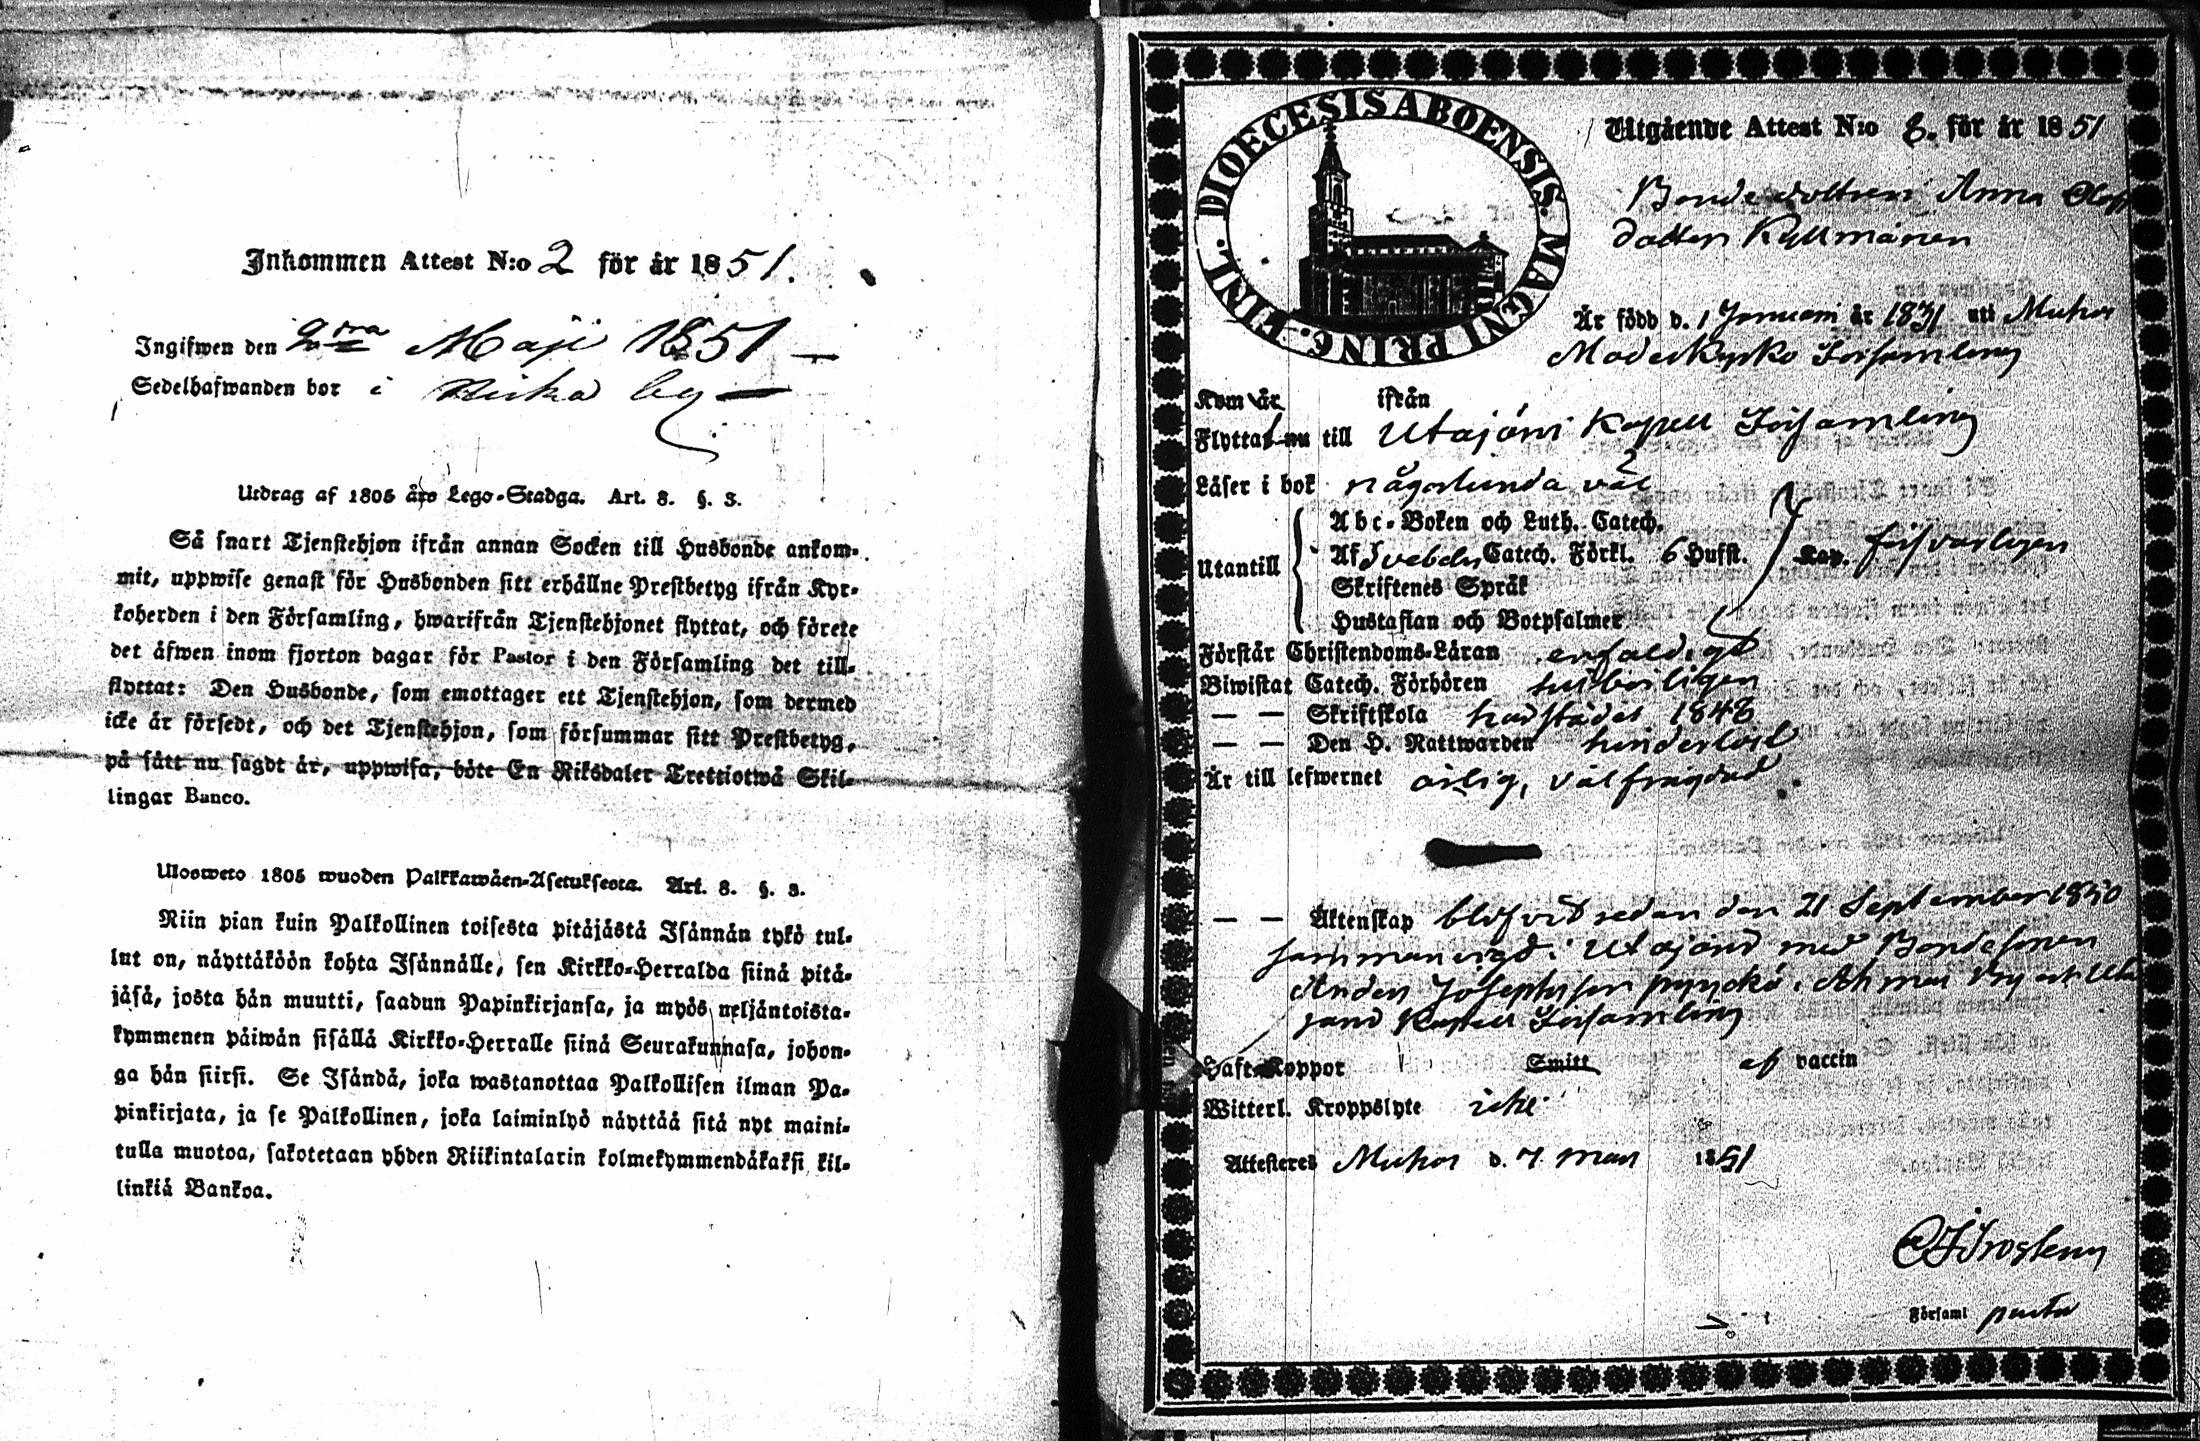 Inkommen Attest N:o 2 för år 1851.
Ingifwen den 9 Maji 1851 —
Sedelhafwanden bor i by —
Utdrag af 1805 års Lego-Stadga. Art. 8. §. 3.
Så snart Tjenstehjon ifrån annan Socken till Husbonde ankom-
mit, uppwise genast för Husbonden sitt erhållne Prestbetyg ifrån Kyr-
koherden i den Församling, hwarifrån Tjenstehjonet flyttat, och förete
det äfwen inom fjorton dagar för Pastor i den Församling det till-
flyttat: Den Husbonde, som emottager ett Tjenstehjon, som dermed
icke är försedt, och det Tjenstehjon, som försummar sitt Prestbetyg,
på sätt nu sagdt är, uppwisa, böte En Riksdaler Trettiotwå Skil-
lingar Banco.
Ulosweto 1805 wuoden Palkkawäen-Asetuksesta. Art. 8. §. 3.
Niin pian kuin Palkollinen toisesta pitäjästä Isännän tykö tul-
lut on, näyttäköön kohta Isännälle, sen Kirkko-Herralda siinä pitä-
jäsä, josta hän muutti, saadun Papinkirjansa, ja myös neljäntoista-
kymmenen päiwän sisällä Kirkko-Herralle siinä Seurakunnasa, johon-
ga hän siirsi. Se Isändä, joka wastanottaa Palkollisen ilman Pa-
pinkirjata, ja se Palkollinen, joka laiminlyö näyttää sitä nyt maini-
tulla muotoa, sakotetaan yhden Riikintalarin kolmekymmendäkaksi kil-
linkiä Bankoa.
DIOECESIS ABOENSIS. MAGNI PRINC. FINL.
Utgående Attest N:o 8. för år 1851
Bonde dottren Anna Olofs
dotter Kyllmänen
Är född d. 1 Januarii år 1831 uti Muhos
Moderkyrko Församling
Kom år ifrån
Flyttat nu till Utajärvi Kapell Församling
Läser i bok någorlunda väl
Utantill
Abc-Boken och Luth. Catech.
Af Svebelii Catech. Förkl. 6 Hufst. Kap. försvarligen
Skriftenes Språk
Hustaflan och Botpsalmer
Förstår Christendoms-Läran enfaldigt
Biwistat Catech. Förhören behörigen
— — Skriftskola 1848
— — Den H. Nattwarden hinderlöst
Är till lefwernet ärlig, välfrägdad.
— — Äktenskap blifvit redan den 21 September 1850
sammanvigd i Utajärvi med Bondesonen
Anders Josephsson Pyykkö i Ahmas By af Uta
järvi Kapell Församling
Haft Koppor Smitt af vaccin
Witterl. Kroppslyte icke
Attesteres Muhos d. 7 Maii 1851
Församl